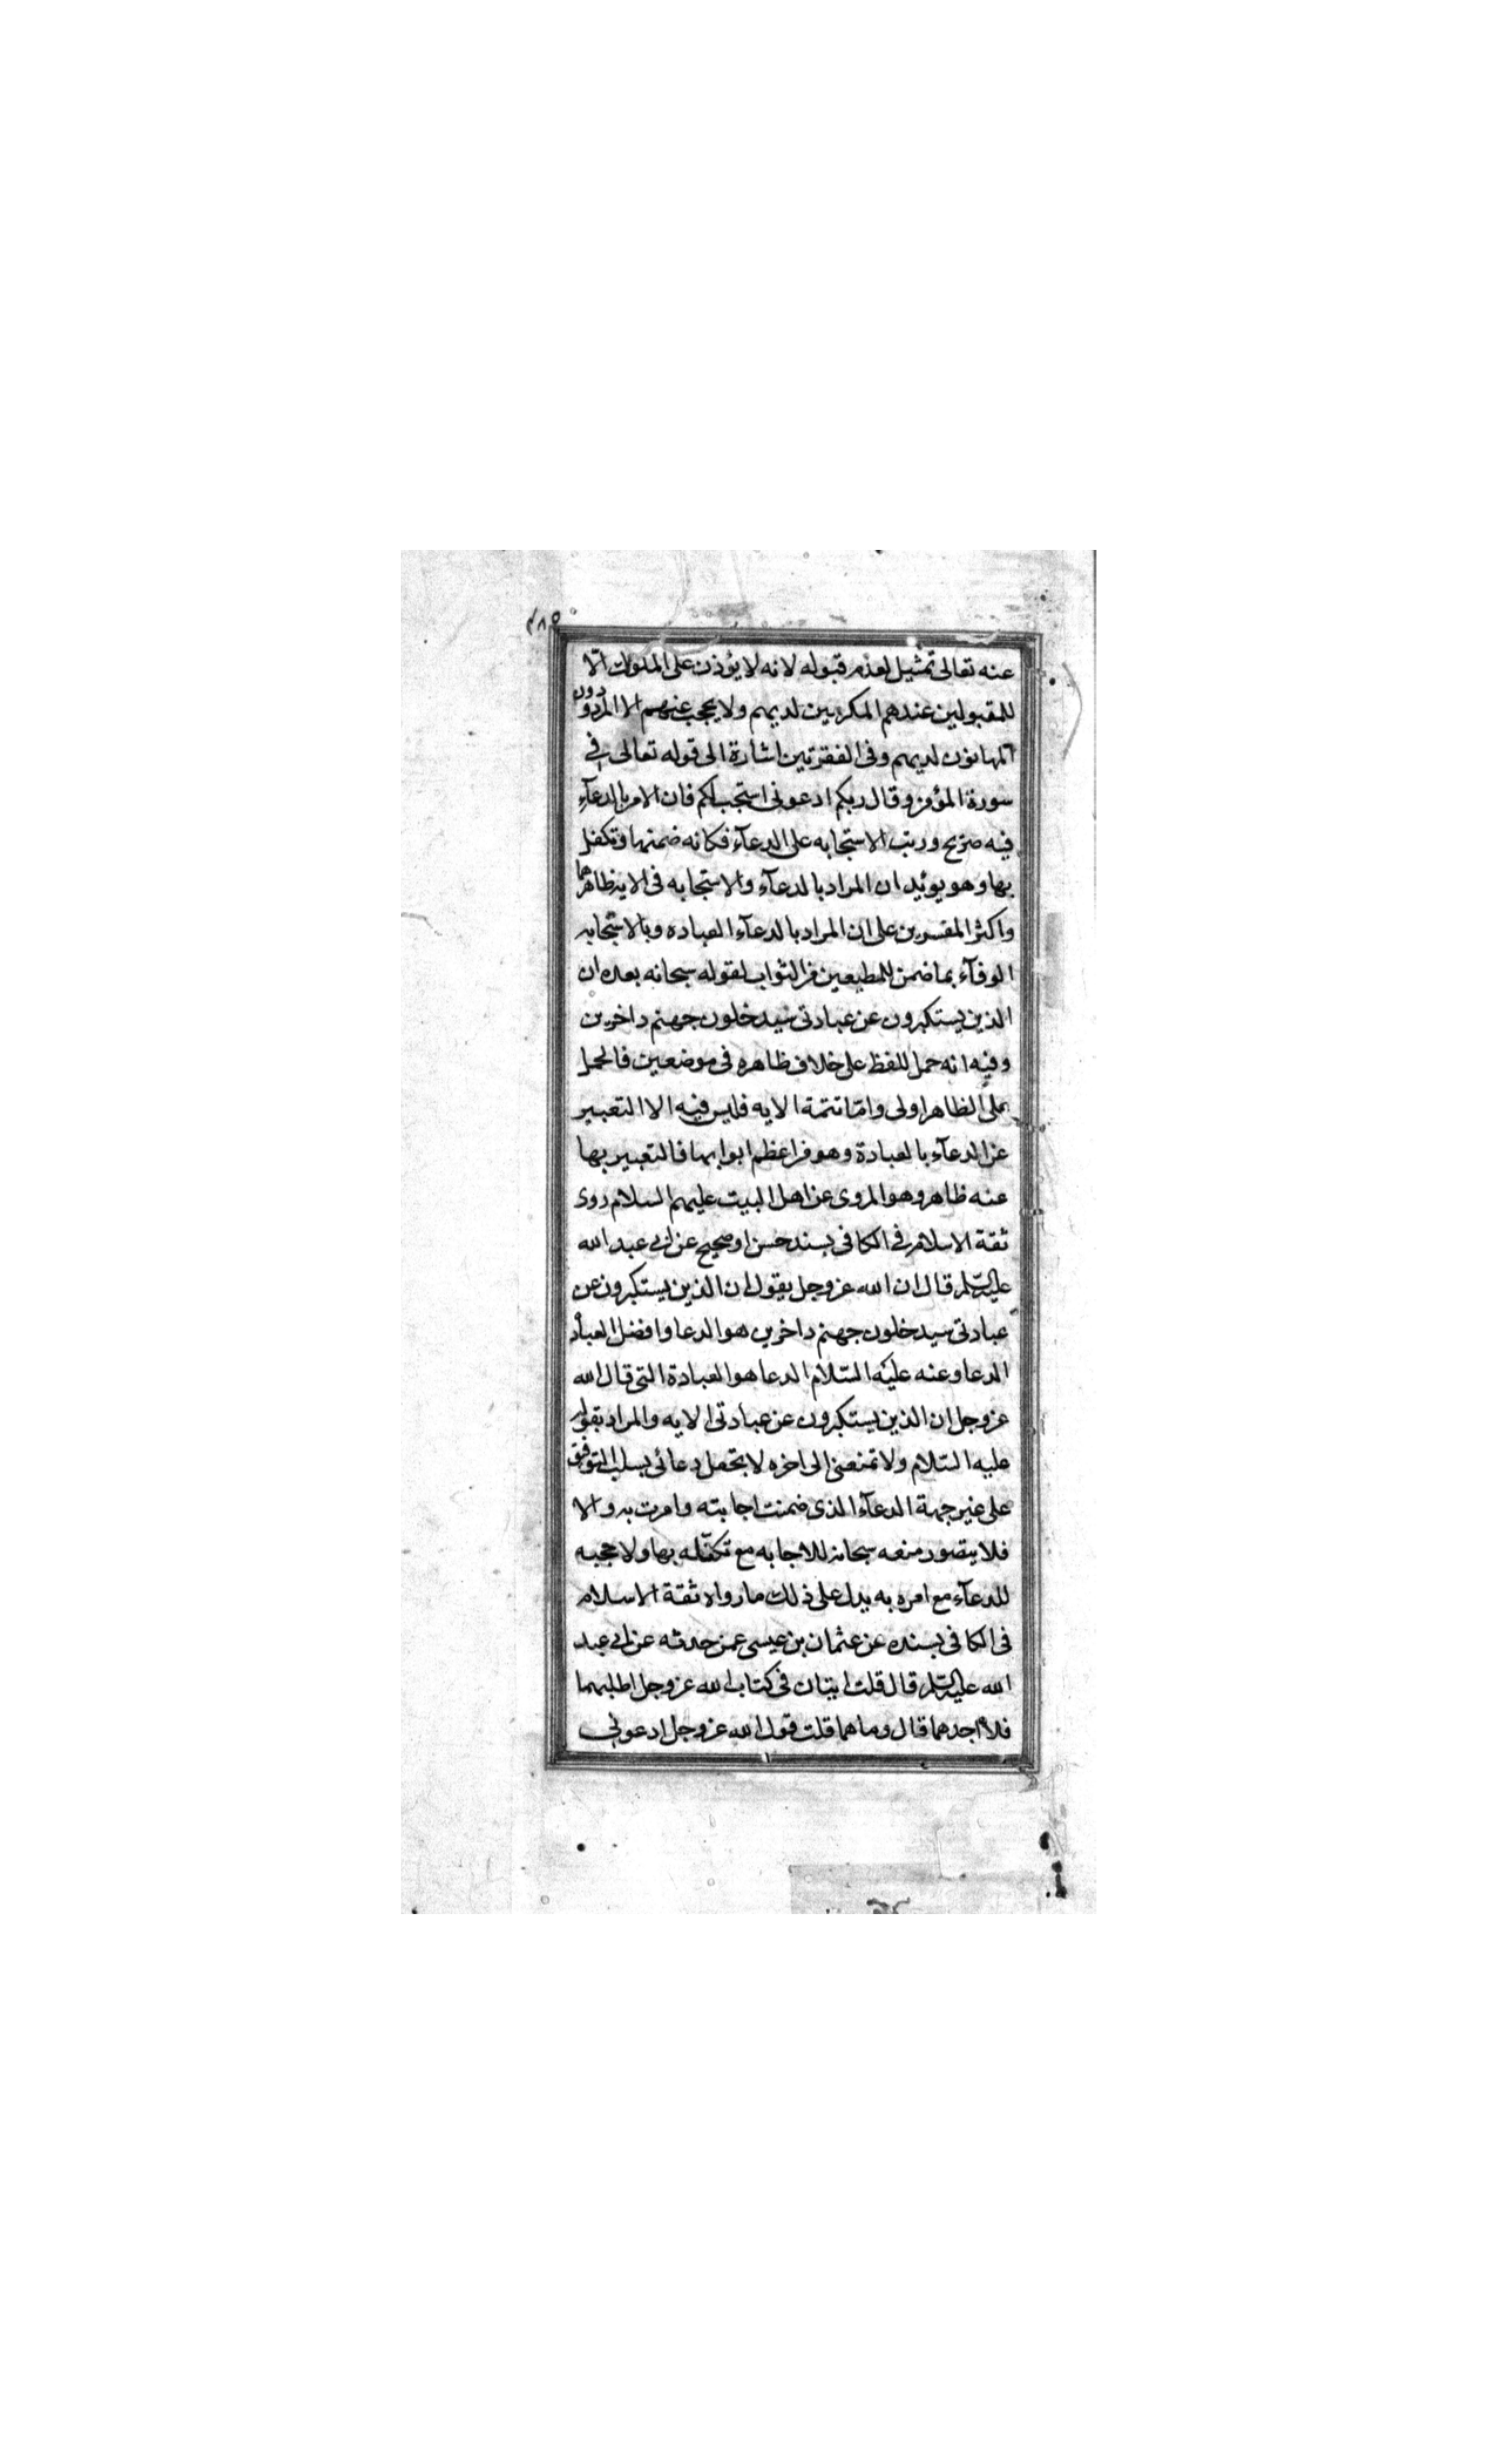 ٤٨٥
عنه تعالى تمثيل لعدم قبوله لانه لا يؤذن على الملوك الا
للمقبولين عندهم المكرمين لديهم ولا يحجب عنهم الا المردودون
المهانون لديهم وفى الفقرتين اشارة الى قوله تعالى فى
سورة المؤمن وقال ربكم ادعونى استجب لكم فان الامر بالدعآء
فيه صريح ورتب الاستجابه على الدعآء فكانه ضمنها وتكفل
بها وهو يوئيد ان المراد بالدعآء والاستجابه فى الايه ظاهرهما
واكثر المفسرين على ان المراد بالدعآء العباده وبالاستجابه
الوفآء بما ضمن للمطيعين من الثواب لقوله سبحانه بعده ان
الذين يستكبرون عن عبادتى سيدخلون جهنم داخرين
وفيه انه حمل للفظ على خلاف ظاهره فى موضعين فالحمل
على الظاهر اولى وامّا تتمة الايه فليس فيه الا التعبير
عن الدعآء بالعبادة وهو من اعظم ابوابها فالتعبير بها
عنه ظاهر وهو المروى عن اهل البيت عليهم السلام روى
ثقة الاسلام فى الكافى بسند حسن او صحيح عن ابى عبد الله
عليه السّلم قال ان الله عز وجل يقول ان الذين يستكبرون عن
عبادتى سيدخلون جهنم داخرين هو الدعا وافضل العبادة
الدعا وعنه عليه السّلام الدعا هو العبادة التى قال الله
عز وجل ان الذين يستكبرون عن عبادتى الايه والمراد بقوله
عليه السّلام ولا تمنعنى الى اخره لا تجعل دعائى بسلب التوفيق
على غير جهة الدعآء الذى ضمنت اجابته وامرت به والا
فلا يتصور منعه سبحانه للاجابه مع تكفّله بها ولا حجبه
للدعآء مع امره به يدل على ذلك ما رواه ثقة الاسلام
فى الكافى بسنده عن عثمان بن عيسى عمن حدثه عن ابى عبد
الله عليه السّلم قال قلت ايتان فى كتاب الله عز وجل اطلبهما
فلا اجدهما قال وما هما قلت قول الله عز وجل ادعونى